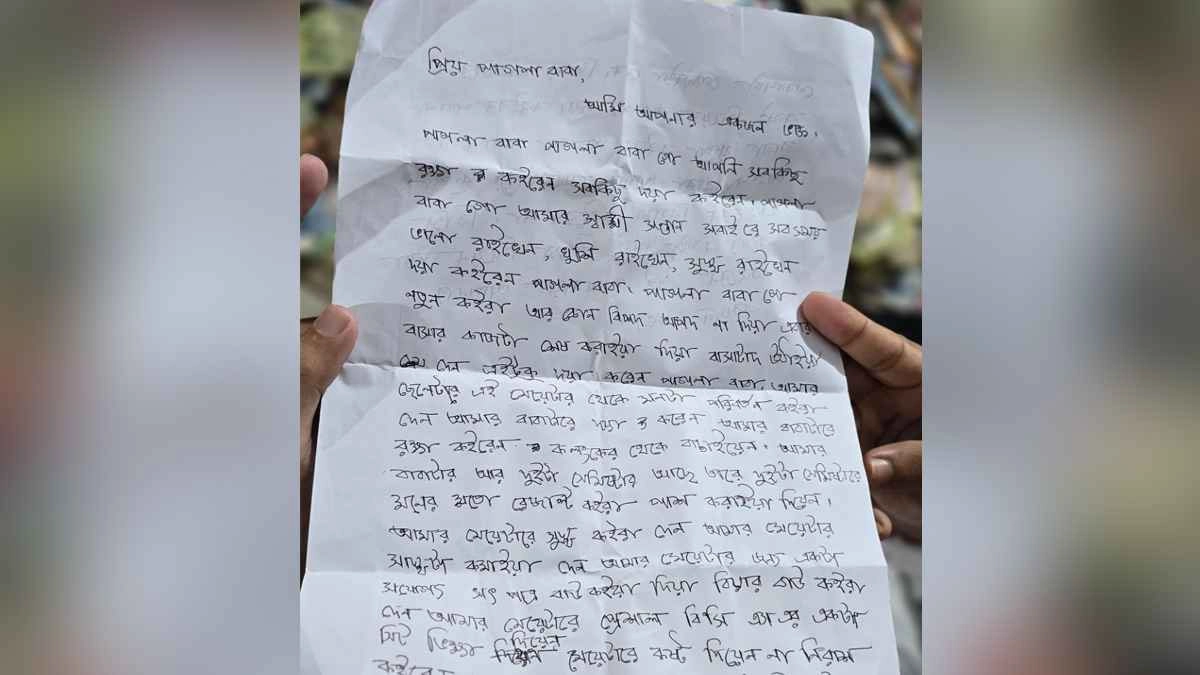 প্রিয় পাগলা বাবা,
আমি আপনার একজন ভক্ত।
পাগলা বাবা পাগলা বাবা গো আপনি সবকিছু
রক্ষা কইরেন সবকিছু দয়া কইরেন। পাগলা
বাবা গো আমার স্বামী সন্তান সবাইরে সবসময়
ভালো রাইখেন, খুশি রাইখেন, সুস্থ রাইখেন
দয়া কইরেন পাগলা বাবা। পাগলা বাবা গো
নতুন কইরা আর কোন বিপদ আপদ না দিয়া এবার
বাসার কাজটা শেষ করাইয়া দিয়া বাসাটাদ উঠাইয়া
দেন এইটুকু দয়া করেন পাগলা বাবা, আমার
ছেলেটার এই মেয়েটার থেকে মনটা পরিবর্তন কইরা
দেন আমার বাবাটারে দয়া করেন আমার বাবাটারে
রক্ষা কইরেন কলংকের থেকে বাচাইয়েন। আমার
বাবাটার আর দুইটা সেমিস্টার আছে তারে দুইটা সেমিস্টারে
মনের মতো রেজাল্ট কইরা পাশ করাইয়া দিয়েন।
আমার মেয়েটারে সুস্থ কইরা দেন আমার মেয়েটার
সাস্থ্যটা কমাইয়া দেন আমার মেয়েটার জন্য একটা
সৎ পাত্র বাউ কইরা দিয়া বিয়ার বাউ কইরা
দেন আমার মেয়েটারে স্পেশাল বিসি এস এর একটা
সিট ভিক্ষা দিয়েন মেয়েটারে কষ্ট দিয়েন না নিরাশ
কইরেন